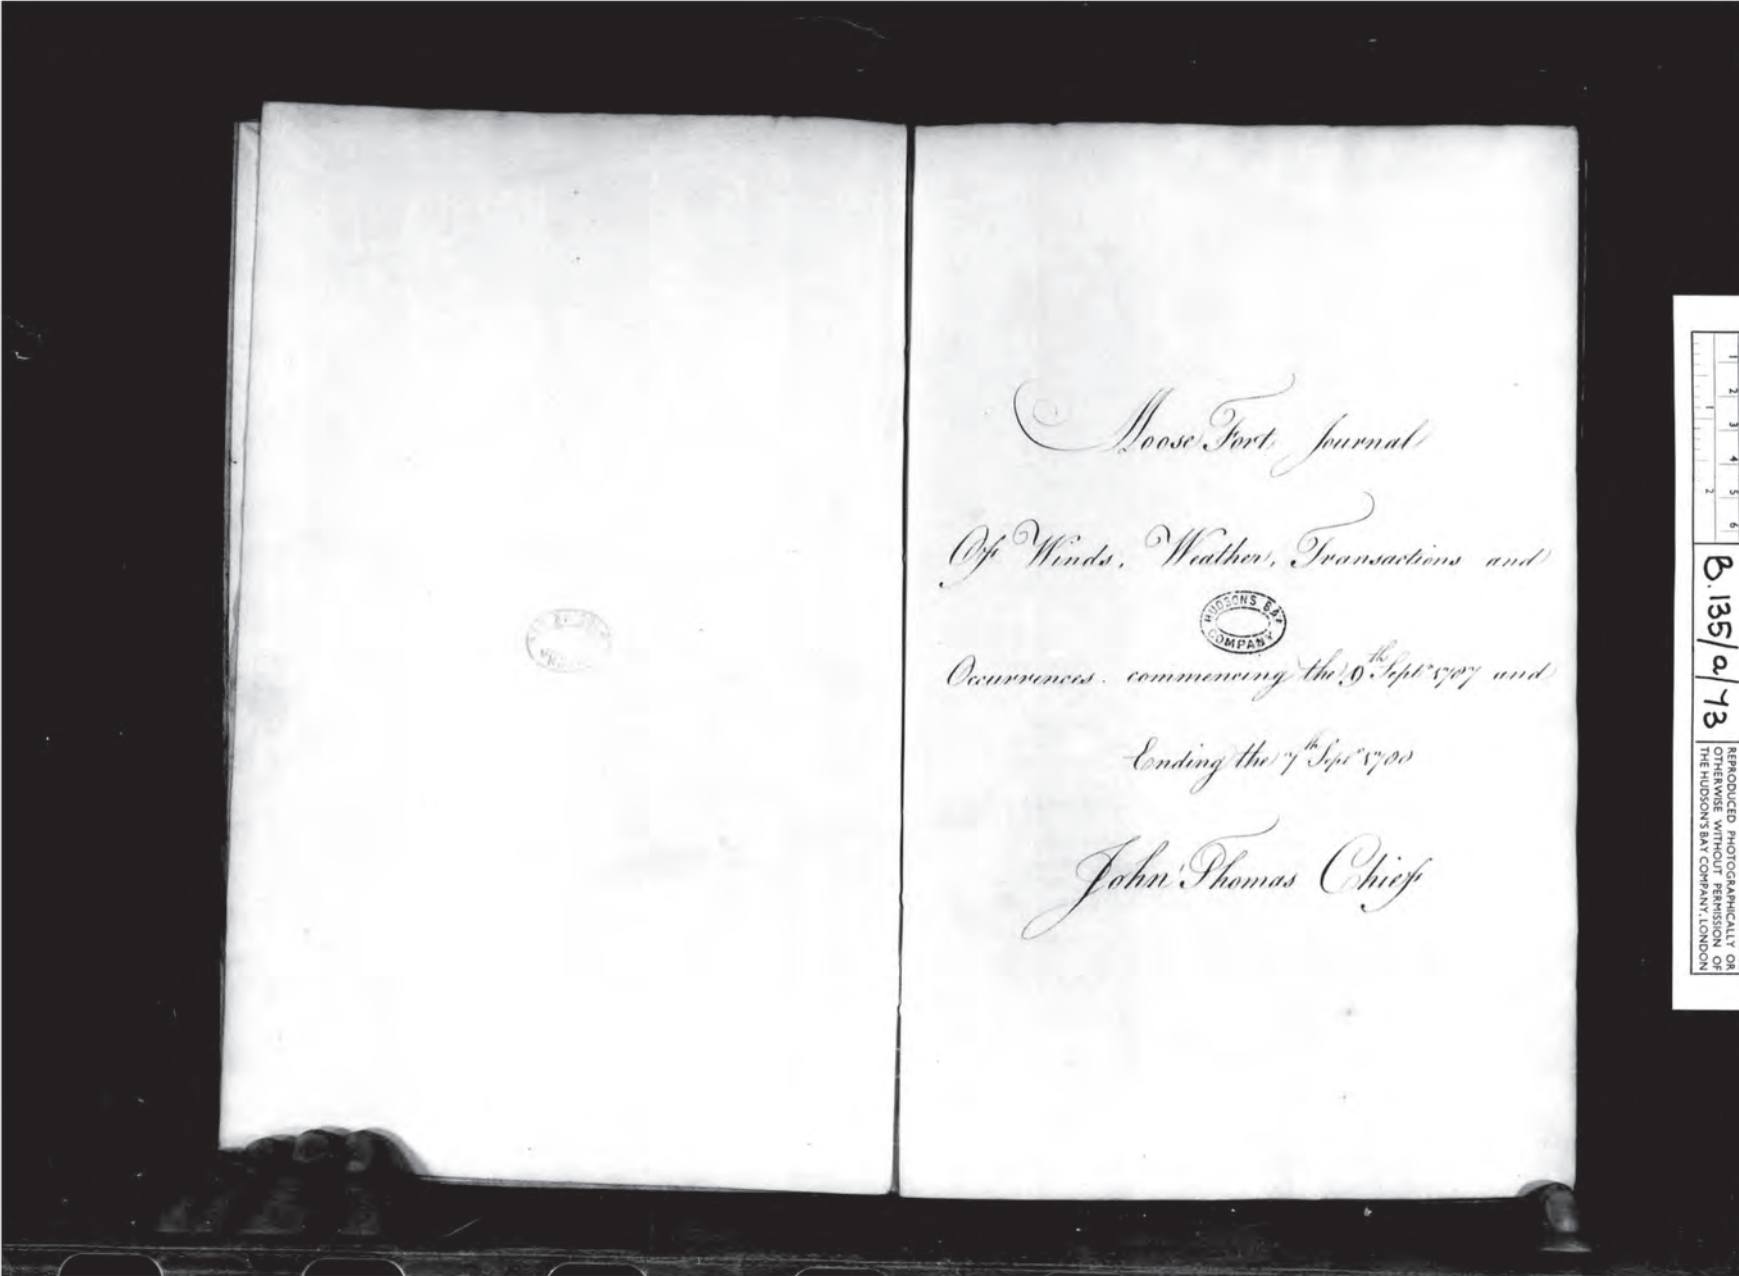 Moose Fort Journal
Of Winds, Weather, Transactions and
HUDSONS BAY
COMPANY
Occurrences. commencing the 9th Septr 1787 and
Ending the 7th Septr 1788
John Thomas Chief
1 2 3 4 5 6
1 2
B.135/a/73
REPRODUCED PHOTOGRAPHICALLY OR
OTHERWISE WITHOUT PERMISSION OF
THE HUDSON'S BAY COMPANY, LONDON